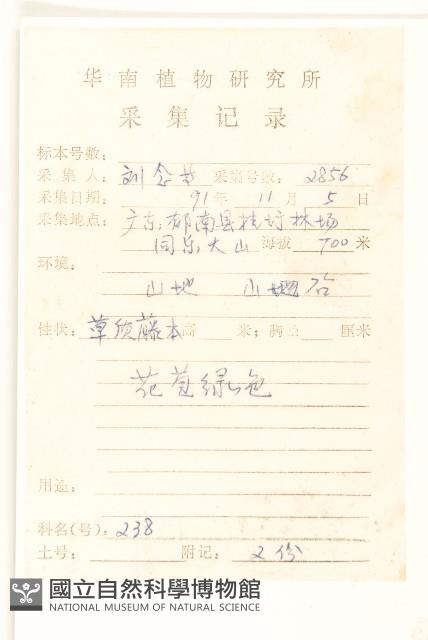 华南植物研究所
采集记录
标本号数：
采集人：刘念 采集号数：2856
采集日期：91年 11月 5日
采集地点：广东，郁南县桂圩林场
同乐大山 海拔 700 米
环境：
山地 山
性状：草质藤本高 米；胸径 厘米
花苞绿色
用途：
科名(号)：238
土号： 附记：2份
國立自然科學博物館
NATIONAL MUSEUM OF NATURAL SCIENCE